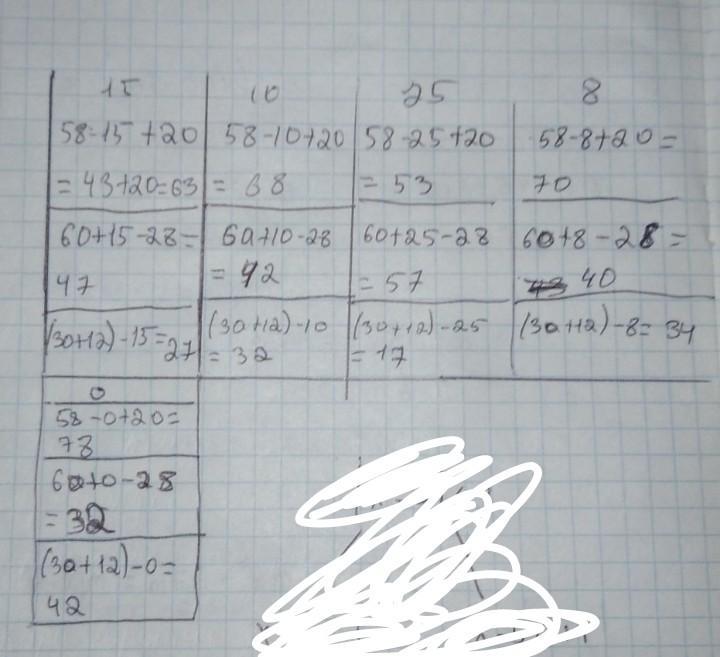 15 10 25 8
58-15+20 58-10+20 58-25+20 58-8+20=
=43+20=63 =68 =53 70
60+15-28= 60+10-28 60+25-28 60+8-28=
47 =42 =57 40
(30+12)-15=27 (30+12)-10 (30+12)-25 (30+12)-8=34
=32 =17
0
58-0+20=
78
60+0-28
=32
(30+12)-0=
42